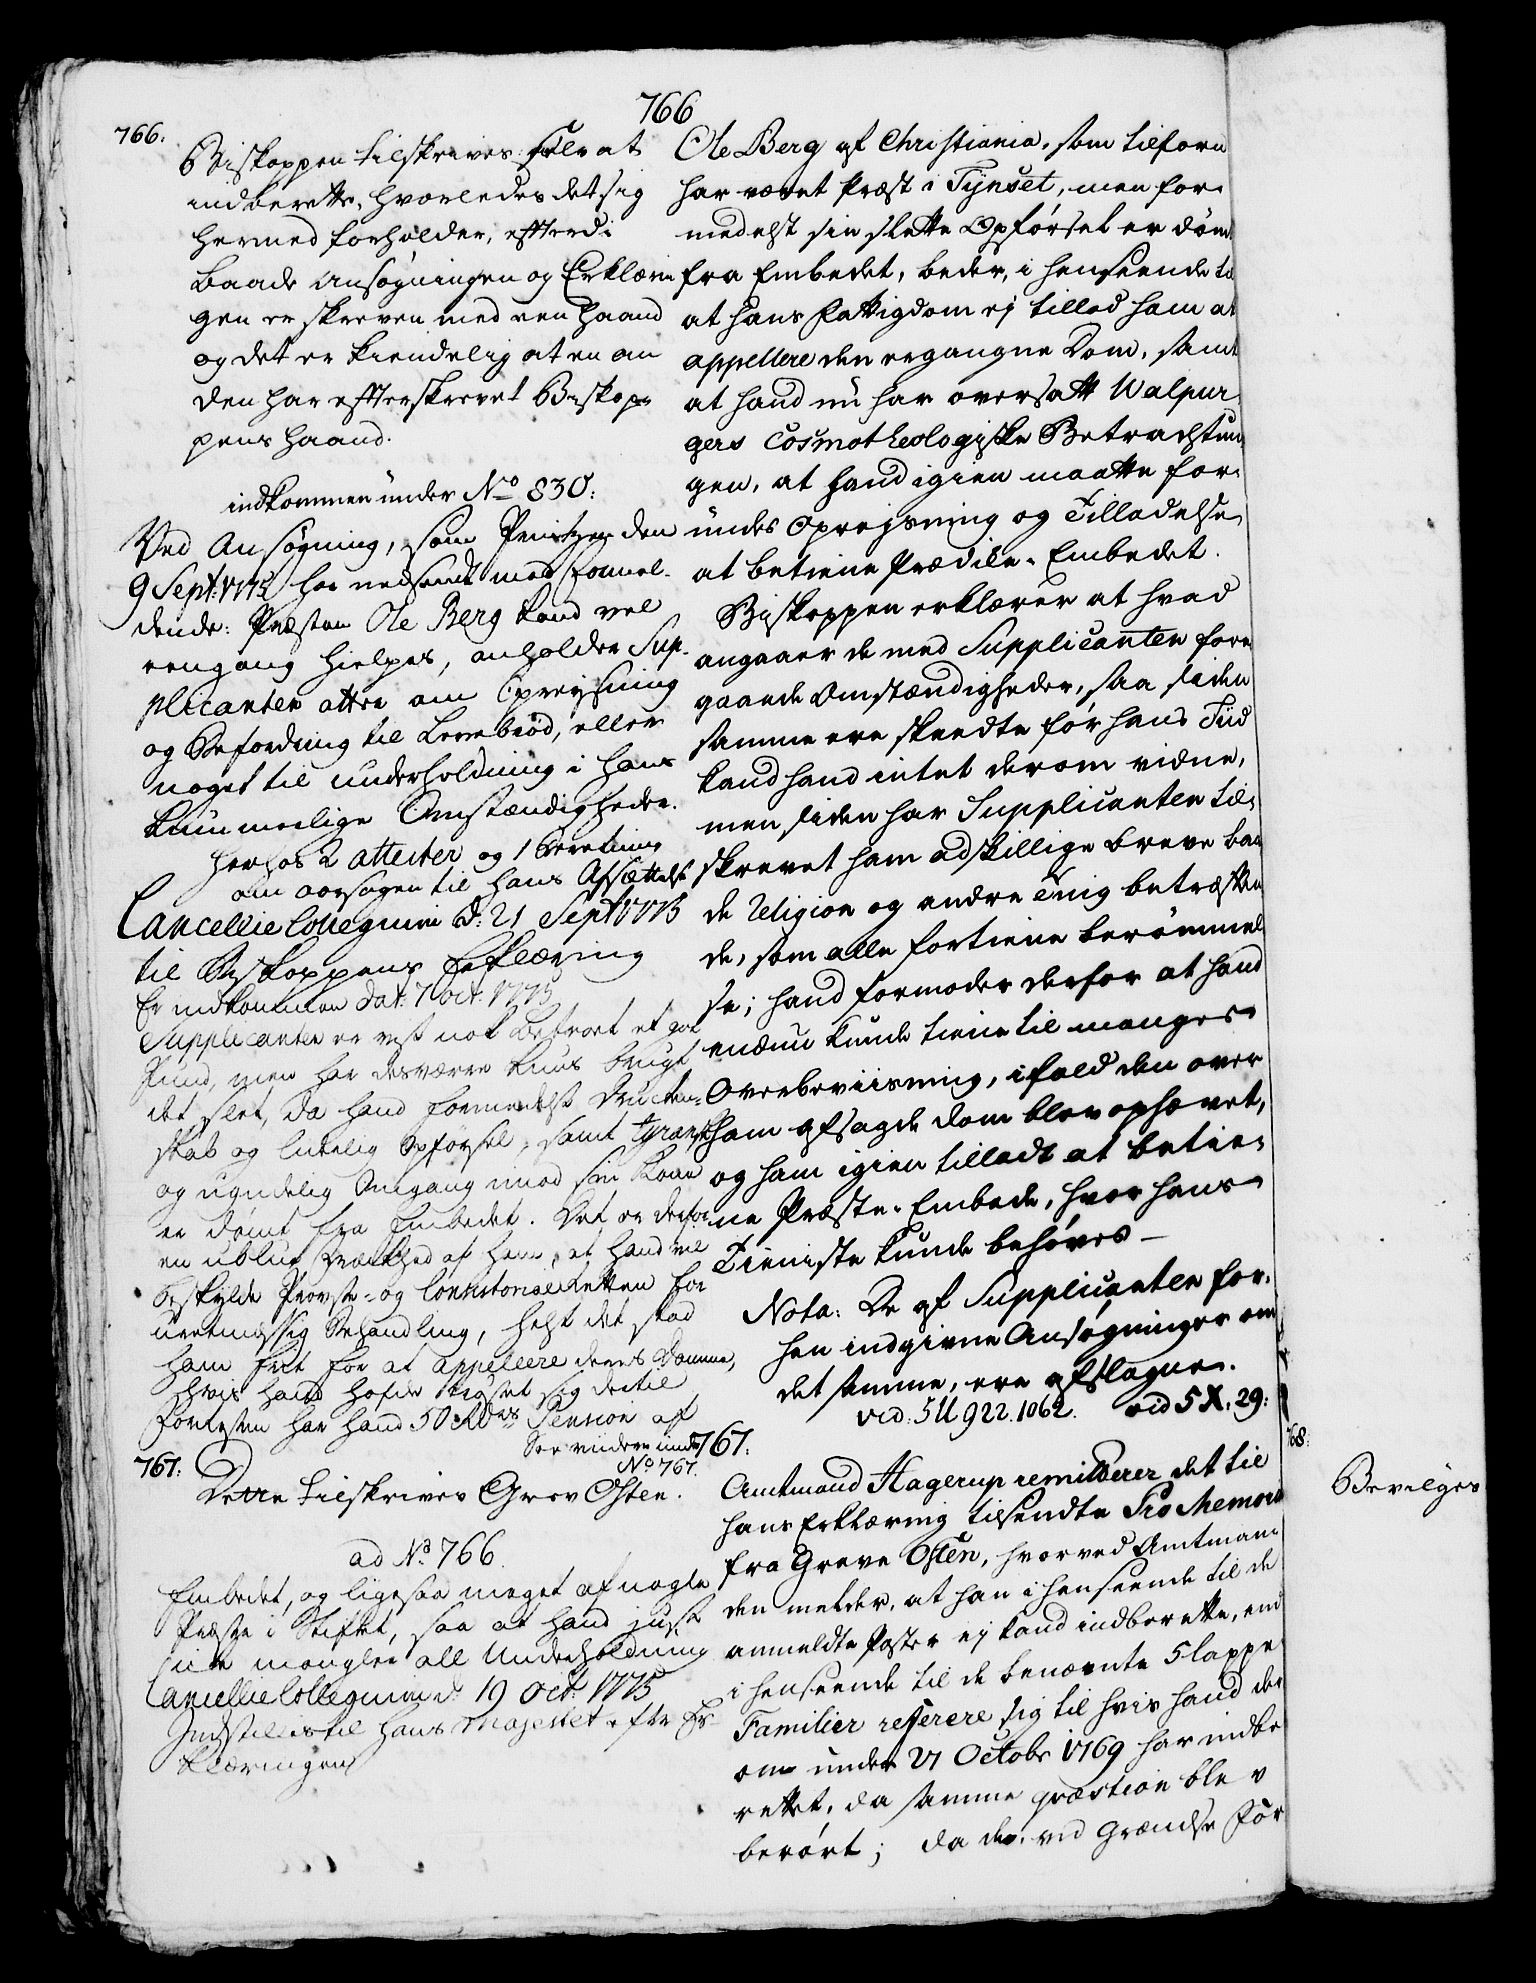 766
766.
Biskoppen tilskrives selv at
indberette, hvorledes det sig
hermed forholder, efterdi
baade Ansøgningen og Erklærin
gen er skreven med een Haand
og det er kiendelig at en an
den har efterskrevet Biskop-
pens Haand.
indkommen under No 830:
Ved Ansøgning, som Printzen den
9 Sept: 1775 har nedsendt med Formel-
dende: Præsten Ole Berg kand vel
eengang hielpes, anholder Sup-
plicanten atter om Opreysning
og Befordring til Levebrød, eller
noget til Underholdning i hans
kummerlige Omstændigheder.
Herhos 2 attester og 1 Beretning
om aarsagen til hans Afsættelse
Cancellie Collegium d: 21 Sept 1775
til Biskoppens Erklæring
Er indkommen dat: 7 oct: 1775
Supplicanten er vist nok betroet et got
Pund, men har desværre kuns brugt
det slet, da hand formedelst Drucken-
skab og liderlig Opførsel, samt tyransk
og ugudelig Omgang imod sin Kone
er dømt fra Embedet. Det er derfor
en ublue Frækhed af ham, at hand vil
beskylde Provste- og Consistorial Retten for
ureetmessig Behandling, helst det stod
ham frit for at appellere deres Domme,
hvis hand hafde
sig dertil
Foresten har hand 50 Rdr Pension af
See videre under
No 767.
767:
Dette tilskrives Grev Osten.
ad No 766.
Embedet, og ligesaa meget af nogle
Præster i Stiftet, saa at hand just
icke mangler all Underholdning
Cancellie Collegium d: 19 Oct: 1775
Indstilles til Hans Majestet efter Er-
klæringen
Ole Berg af Christiania, som tilforn
har været Præst i Tÿnset, men for-
medelst sin slette Opførsel er dømt
fra Embedet, beder, i henseende til
at hans Fattigdom ej tillod ham at
appellere den ergangne Dom, samt
at hand nu har oversatt Walpur
gers Cosmotheologiske Betragtnin
gen, at hand igien maatte for-
undes Oprejsning og Tilladelse
at betiene Prædike-Embedet.
Biskoppen erklærer at hvad
angaaer de med Supplicanten fore
gaaende Omstændigheder, saa siden
samme ere skeedte før hans Tiid
kand hand intet derom vidne,
men siden har Supplicanten til-
skrevet ham adskillige breve baa
de Religion og andre Ting betreffen
de, som alle fortiene berømmel
se; hand formoder derfor at hand
endnu kunde tiene til manges
Overbeviisning, ifald den over
ham afsagde Dom blev ophævet,
og ham igien tilladt at betie-
ne Præste-Embede, hvor hans
Tieniste kunde behøves —
Nota: De af Supplicanten for-
hen indgivne Ansøgninger om
det samme, ere afslagne.
vid: 5 U 922. 1062. vid 5 X. 29:
767.
Amtmand Hagerup remitterer det til
hans Erklæring tilsendte Pro Memoria
fra Greve Osten, hvorved Amtman
den melder, at han i henseende til de
anmeldte Poster ej kand indberette, end
i henseende til de benævnte 5 lappe
Familier referere sig til hvis hand der
om under 21 Octobr 1769 har indbe
rettet, da samme qvæstion blev
berørt; da der ved Grændse For
768:
Bevilges